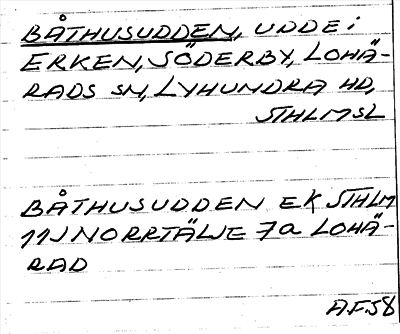 BÅTHUSUDDEN, UDDE i
ERKEN, SÖDERBY, LOHÄ-
RADS SN, LYHUNDRA HD,
STHLMSL
BÅTHUSUDDEN EK STHLM
11J NORRTÄLJE 7a LOHÄ-
RAD
A.F.58